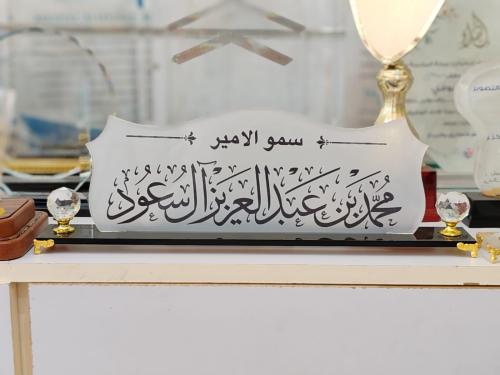 سمو الامير
مُحمَّد بْن عَبْد العَزيز آل سُعُود